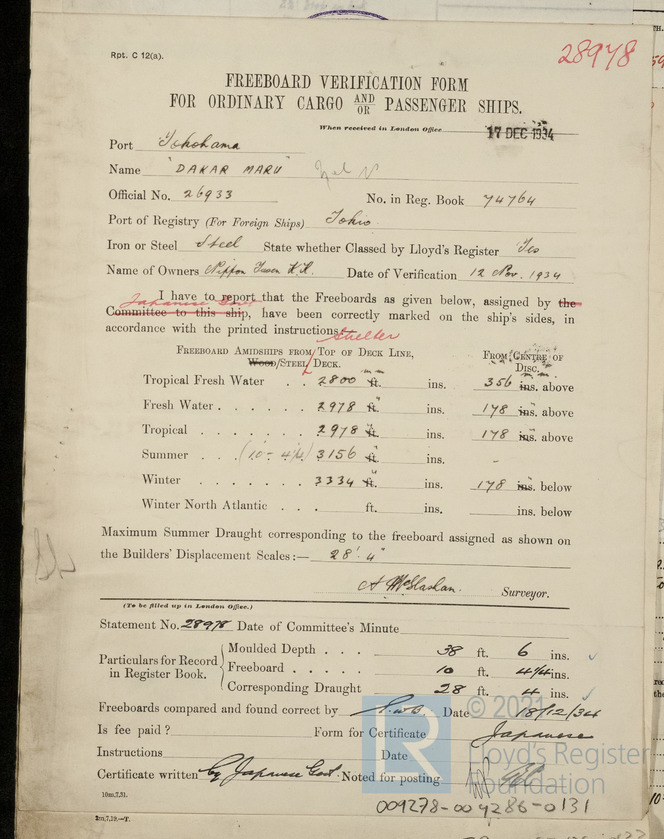 28978
Rpt. C 12(a).
FREEBOARD VERIFICATION FORM
FOR ORDINARY CARGO AND/OR PASSENGER SHIPS.
When received in London Office 17 DEC 1934
Port Yokohama
Name "DAKAR MARU"
Official No. 26933 No. in Reg. Book 74764
Port of Registry (For Foreign Ships) Tokio
Iron or Steel Steel State whether Classed by Lloyd's Register Yes
Name of Owners Nippon Yusen K.K. Date of Verification 12 Nov. 1934
I have to report that the Freeboards as given below, assigned by the
Japanese Govt
Committee to this ship, have been correctly marked on the ship's sides, in
accordance with the printed instructions:—
Shelter
FREEBOARD AMIDSHIPS FROM TOP OF DECK LINE, FROM CENTRE OF
WOOD/STEEL DECK. DISC.
mm mm
Tropical Fresh Water . . 2800 ft. ins. 356 ins. above
Fresh Water . . . . . . 2978 " ft. ins. 178 ins. above
Tropical . . . . . . . 2978 " ft. ins. 178 ins. above
Summer . . . (10-4¼) 3156 " ft. ins. -
Winter . . . . . . . 3334 " ft. ins. 178 ins. below
Winter North Atlantic . . . ft. ins. ins. below
Maximum Summer Draught corresponding to the freeboard assigned as shown on
the Builders' Displacement Scales:— 28'. 4"
A McGlashan. Surveyor.
(To be filled up in London Office.)
Statement No. 28978 Date of Committee's Minute
Particulars for Record in Register Book.
Moulded Depth . . . 38 ft. 6 ins.
Freeboard . . . . . 10 ft. 4¼ ins.
Corresponding Draught 28 ft. 4 ins.
Freeboards compared and found correct by Date 18/12/34
Is fee paid? Form for Certificate Japanese
Instructions Date
Certificate written by Japanese Govt. Noted for posting
10m,7,31.
2m,7,19.—T.
009278-009286-0131
© 2021
Lloyd's Register
Foundation